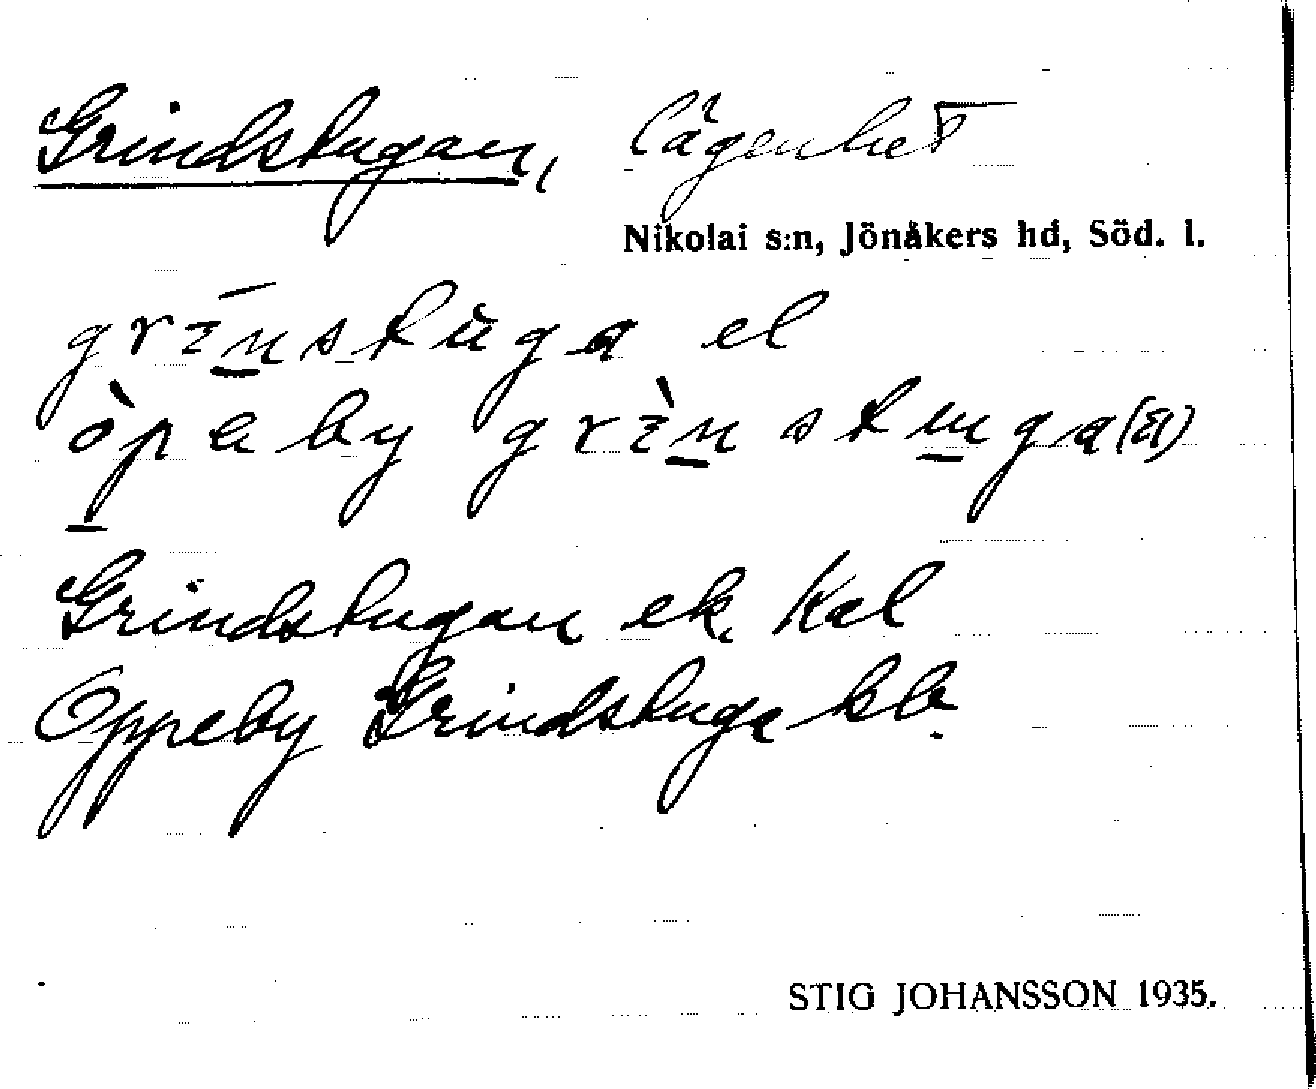 Grindstugan, lägenhet
Nikolai s:n, Jönåkers hd, Söd. l.
grinstùga el
òpeby grìnstuga (Ä)
Grindstugan ek. Kal
Oppeby Grindstuga kb.
STIG JOHANSSON 1935.